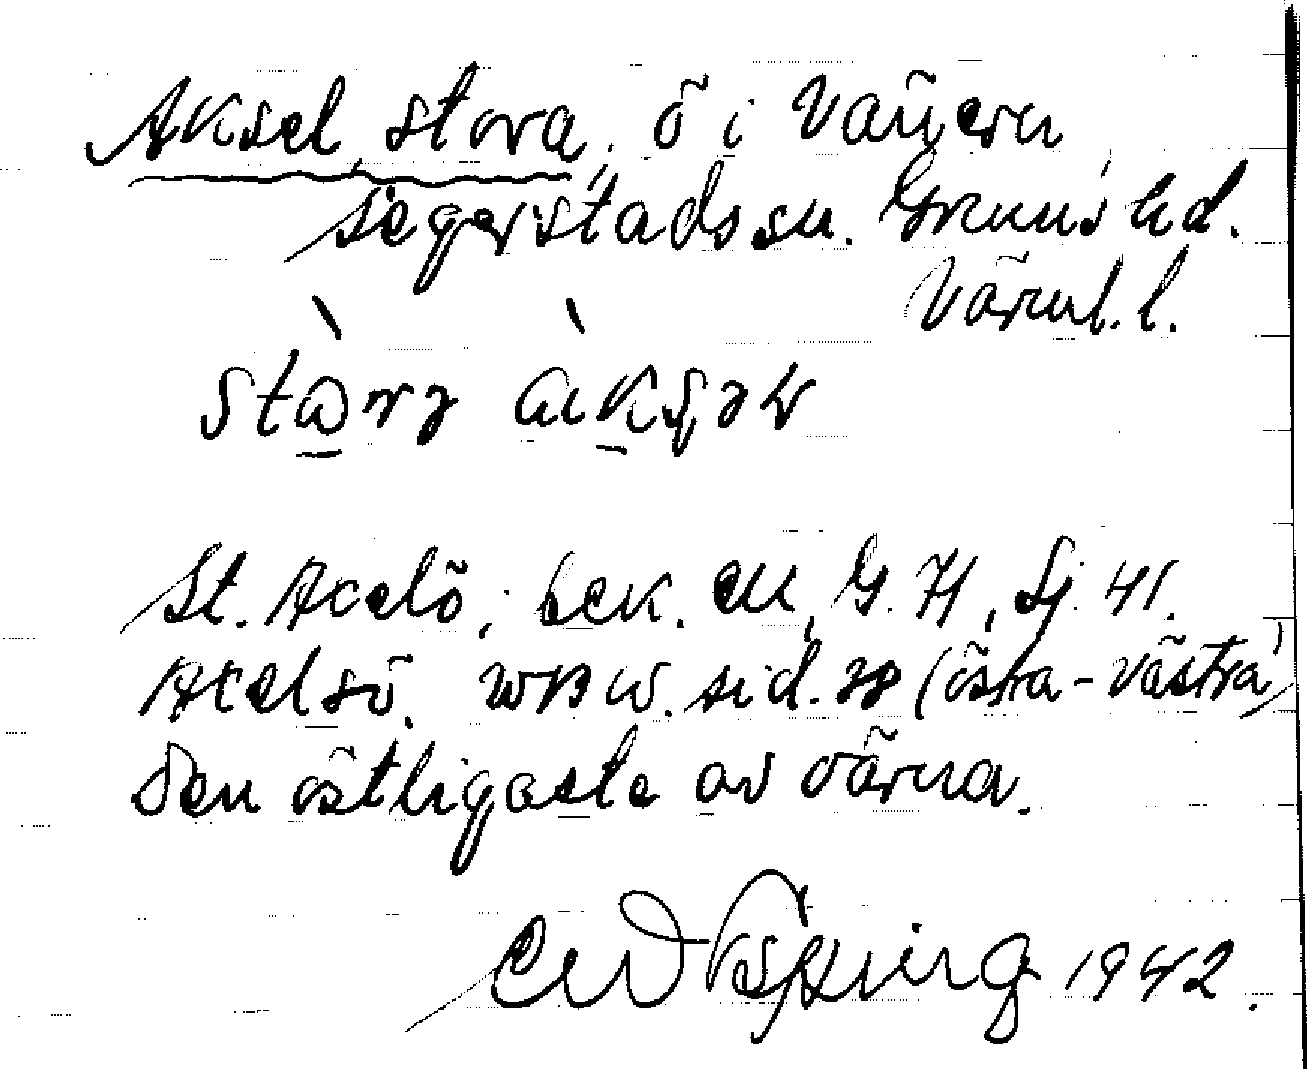 Aksel, stora, ö i Vänern,
Segerstads sn. Grums hd.
Värml. l.
St. Axelö, bek. G. 71, Sj. 41.
Axelsö. sid. 28 (östra - västra)
Den östligaste av öarna.
1942.